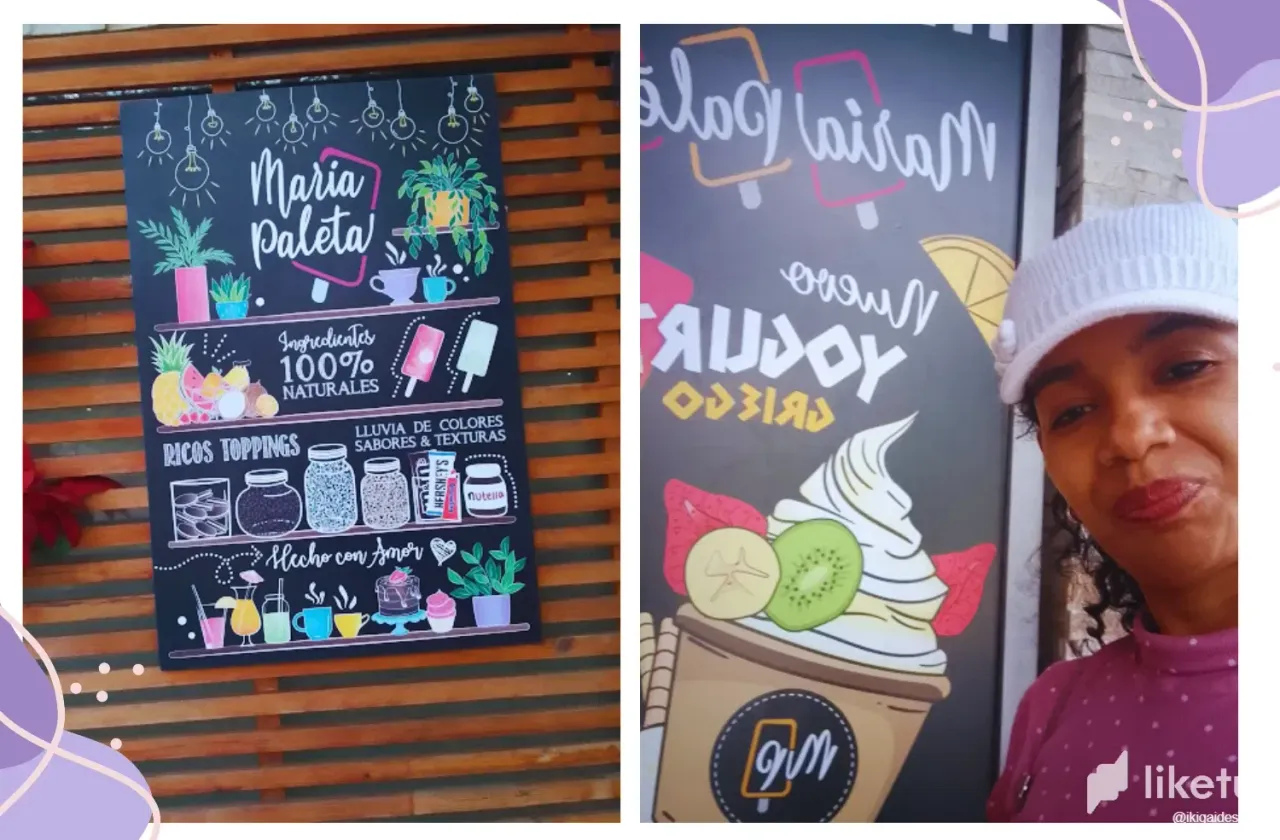 Maria
Paleta
Ingredientes
100%
NATURALES
RICOS TOPPINGS
LLUVIA DE COLORES
SABORES & TEXTURAS
HERSHEY'S
nutella
Hecho con Amor
Maria Pale
Nuevo
YOGURT
GRIEGO
MP
liketu
@ikigaides